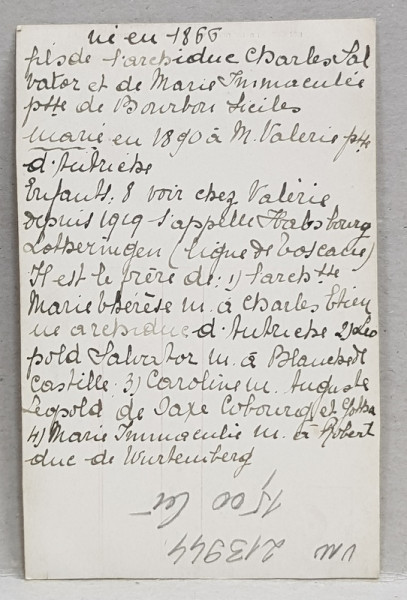 né en 1866
fils de l'archiduc Charles Sal
vator et de Marie Immaculée
ptte de Bourbon Siciles
marié en 1890 à M. Valerie ptte
d'Autriche
Enfants: 8 voir chez Valérie
depuis 1919 s'appelle Habsbourg
Lotheringen (ligne de Toscane)
Il est le frère de: 1) l'archtte
Marie Thérèse m. à Charles Etien
ne archiduc d'Autriche 2) Léo
pold Salvator m. à Blanche de
Castille 3) Caroline m. Auguste
Léopold de Saxe Cobourg et Gotha
4) Marie Immaculie m. à Robert
duc de Wurtemberg
1500 lei
213944